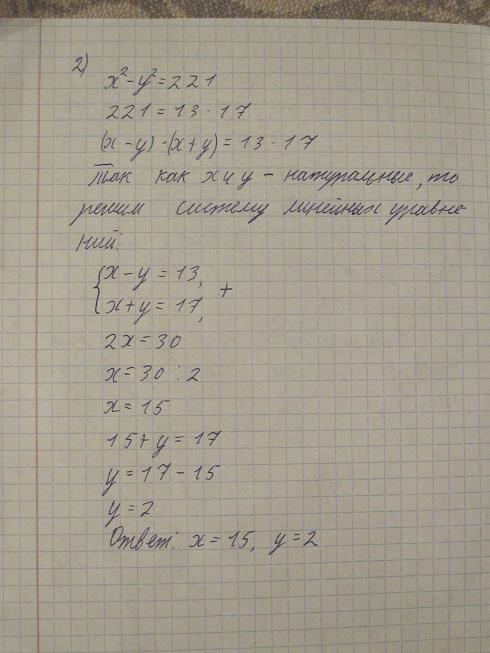 2)
x² - y² = 221
221 = 13 · 17
(x - y) · (x + y) = 13 · 17
Так как x и y - натуральные, то
решим систему линейных уравне-
ний:
{ x - y = 13,
x + y = 17, +
2x = 30
x = 30 : 2
x = 15
15 + y = 17
y = 17 - 15
y = 2
Ответ: x = 15, y = 2